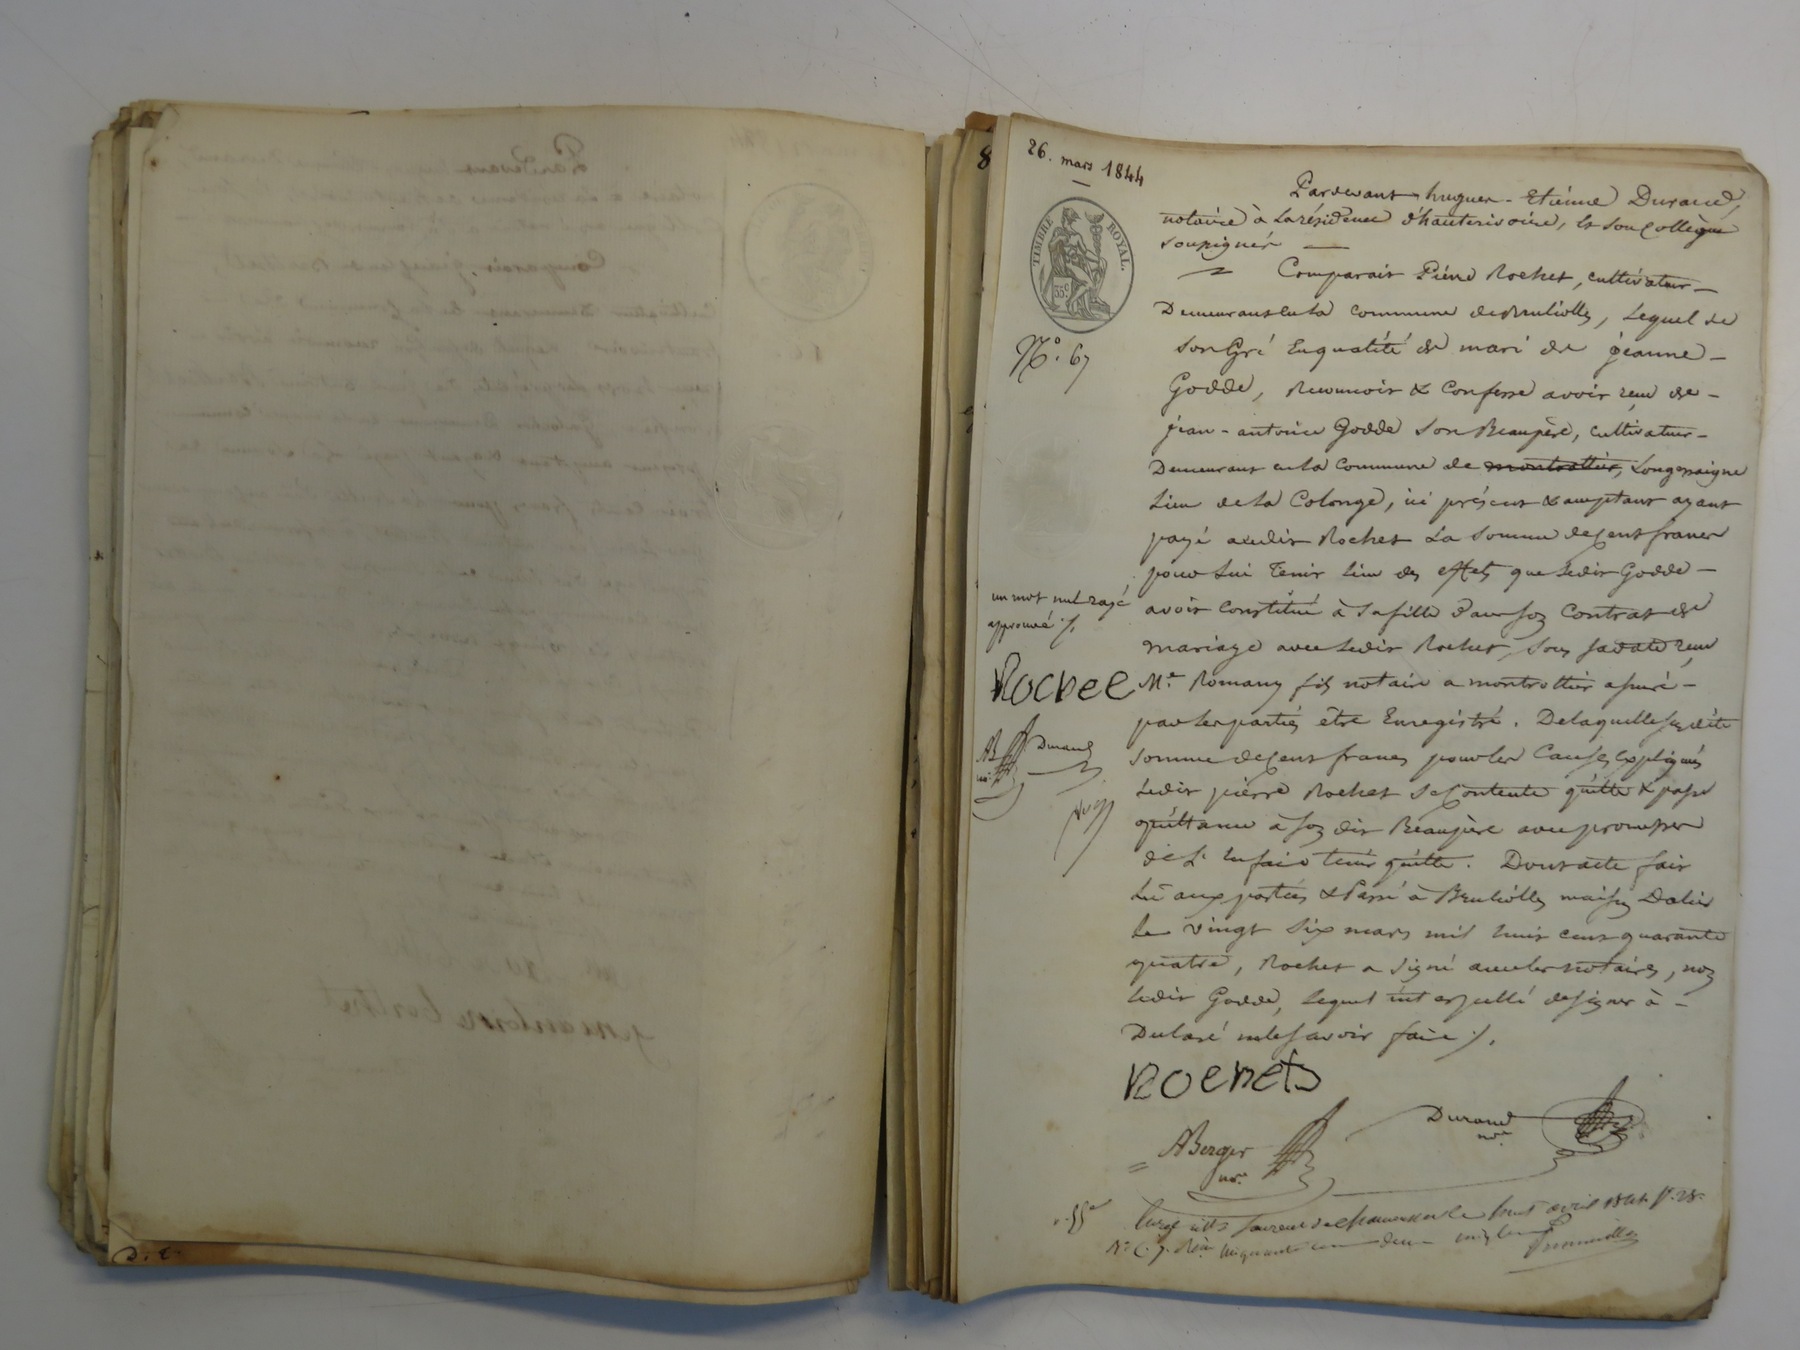 8
26. mars 1844
TIMBRE ROYAL.
35c
N.° 67
Pardevant hugues-Etiénne Durand,
notaire à La résidence d'hauterivoire, & son Collègue
soussignés —
Comparait Piérre Rochet, cultivateur
Demeurant en la commune de Brulliolles, Lequel de
son Gré En qualité de mari de jeanne
Godde, Reconnoit & Confesse avoir reçu de
jean-antoine Godde son Beaupère, cultivateur
Demeurant en la commune de montrottier, Longessaigne
Lieu de La Colonge, ici présent & acceptant ayant
payé audit Rochet La somme de cent francs
pour Lui Tenir lieu des effets que Ledit Godde
avoit Constitué à sa fille dans son Contrat de
mariage avec Ledit Rochet, sous sa date reçu
Me. Romany fils notaire a montrottier assuré
par les parties être Enregistré. De laquelle susdite
somme de cent francs pour les Causes Expliquées
Ledit pièrre Rochet se Contente quitte & passe
quittance à son dit Beaupère avec promesse
de L' En faire tenir quitte. Dont acte fait
Lu aux parties & Passé à Brulliolles maison
le vingt six mars mil huit cent quarante
quatre, Rochet a signé avec les notaires, non
Ledit Godde, lequel interpellé de signer à
Déclaré ne le savoir faire ./.
un mot nul rayé
approuvé ./.
Rochet
AB
Durand
Rochets
ABerger
nre.
Durand
nre.
huit avril 1844 f. 28